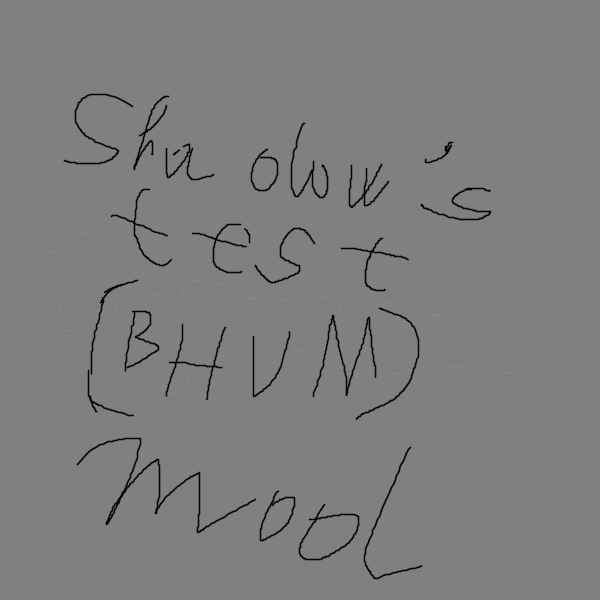 Shadow's
test
(BHVM)
Mool